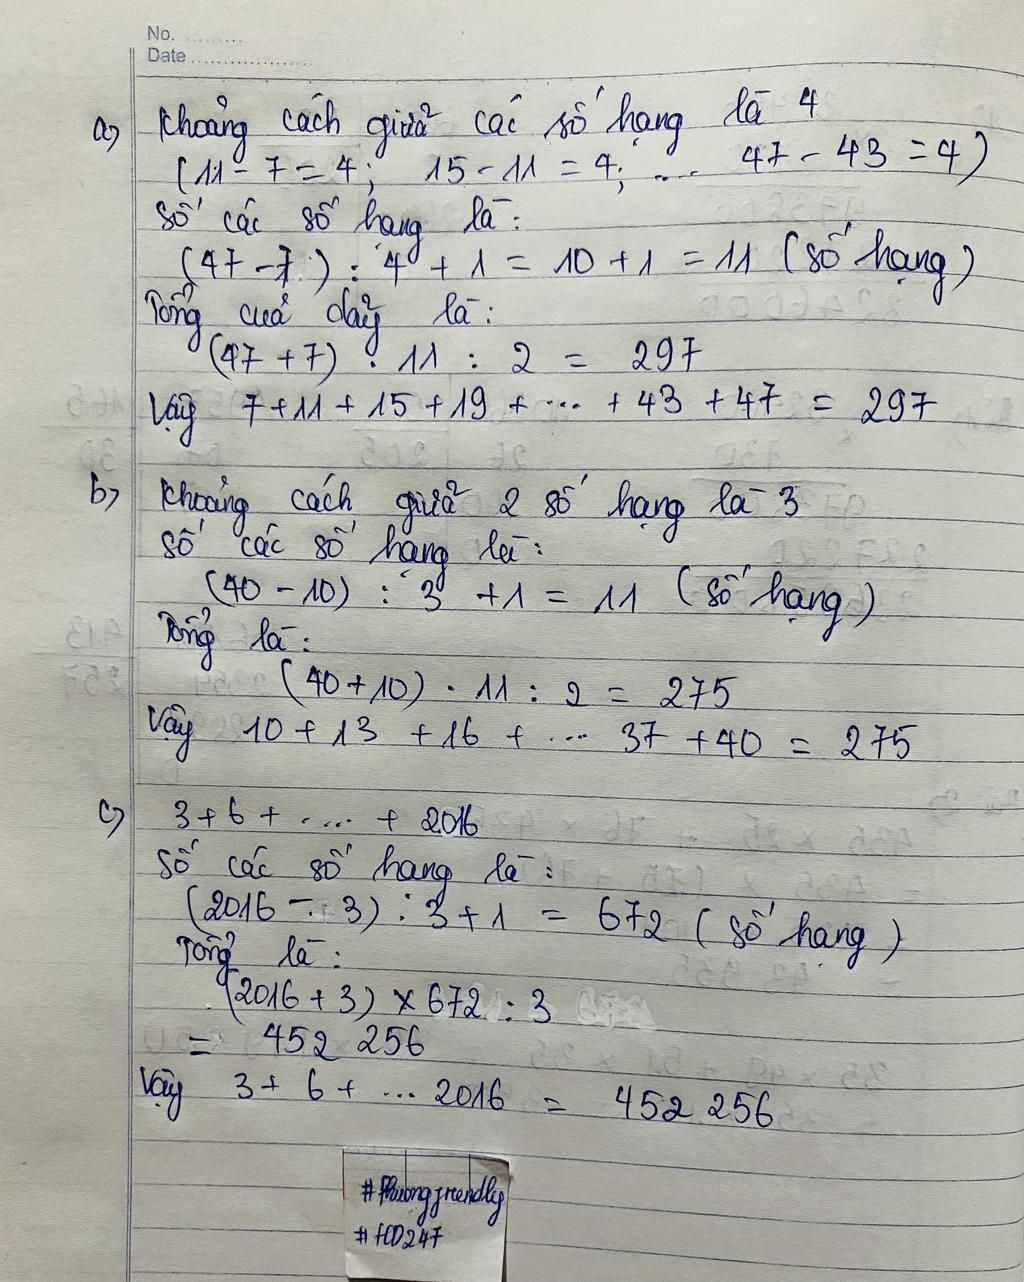 No. .........
Date ...................
a) Khoảng cách giữa các số hạng là 4
(11 - 7 = 4; 15 - 11 = 4; ... 47 - 43 = 4)
Số các số hạng là:
(47 - 7) : 4 + 1 = 10 + 1 = 11 (số hạng)
Tổng của dãy là:
(47 + 7) . 11 : 2 = 297
Vậy 7 + 11 + 15 + 19 + ... + 43 + 47 = 297
b) Khoảng cách giữa 2 số hạng là 3
Số các số hạng là:
(40 - 10) : 3 + 1 = 11 (số hạng)
Tổng là:
(40 + 10) . 11 : 2 = 275
Vậy 10 + 13 + 16 + ... 37 + 40 = 275
c) 3 + 6 + .... + 2016
Số các số hạng là:
(2016 - 3) : 3 + 1 = 672 (số hạng)
Tổng là:
(2016 + 3) × 672 : 3
= 452 256
Vậy 3 + 6 + ... 2016 = 452 256
#Phuongfriendly
#FCD247